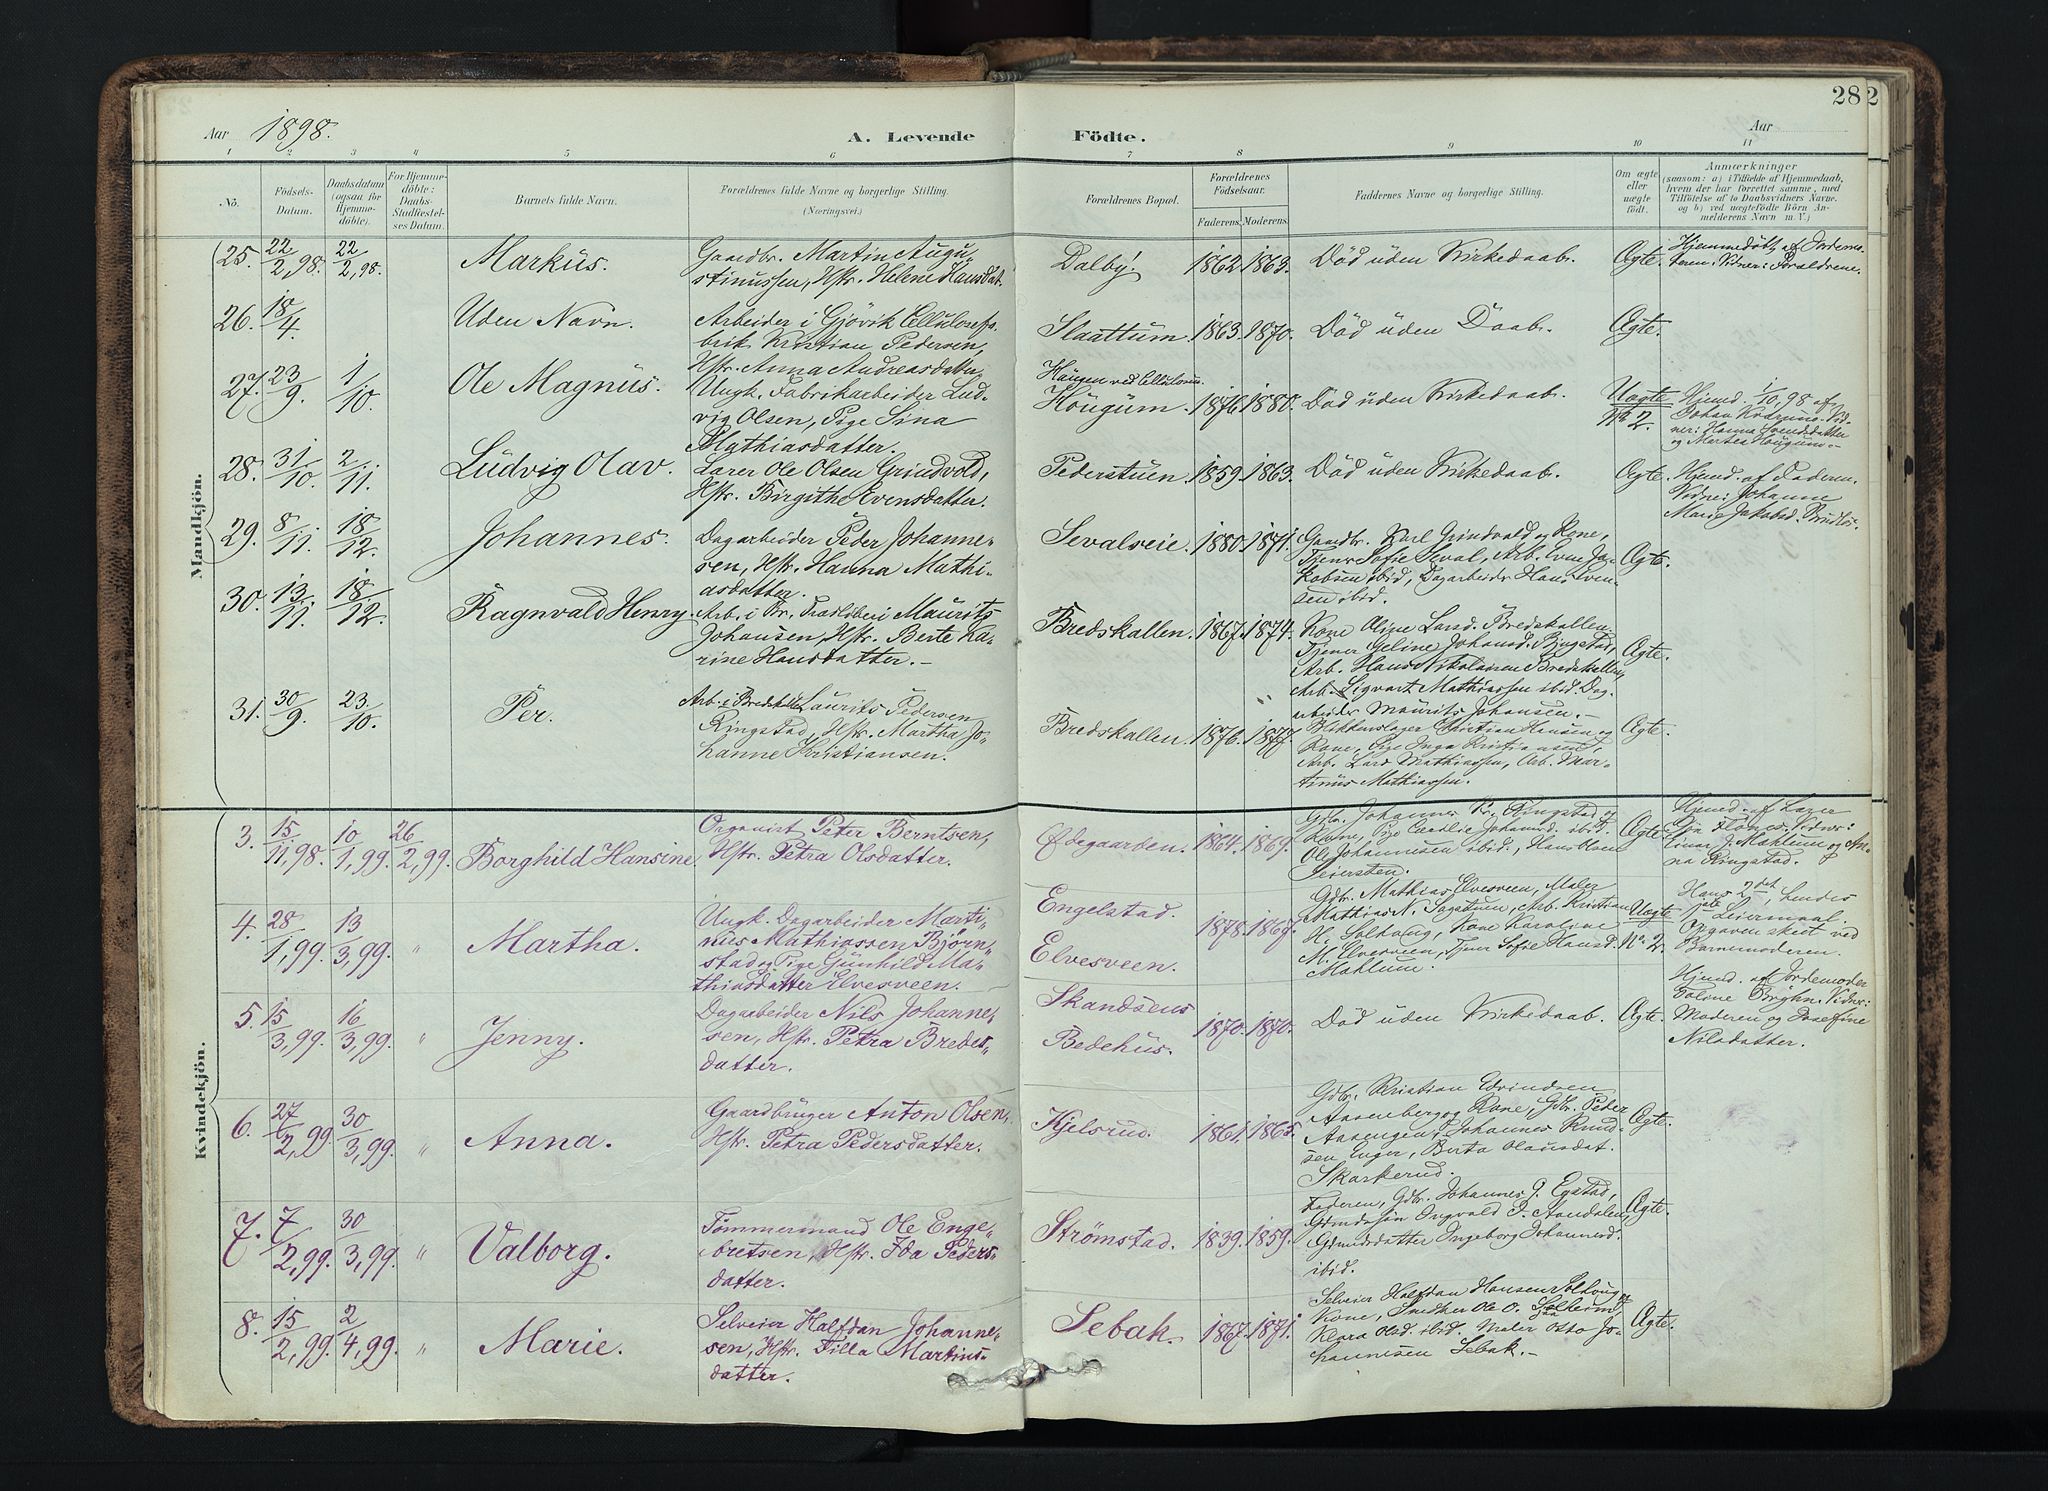 Aar 1898.
A. Levende Födte.
Aar
282
1 2 3 4 5 6 7 8 9 10 11
No.
Födsels-Datum.
Daabsdatum (ogsaa for Hjemmedöbte).
For Hjemmedöbte: Daabs-Stadfæstelses Datum.
Barnets fulde Navn.
Forældrenes fulde Navne og borgerlige Stilling.
(Næringsvei.)
Forældrenes Bopæl.
Forældrenes Födselsaar.
Faderens. Moderens.
Faddernes Navne og borgerlige Stilling.
Om ægte eller uægte födt.
Anmærkninger
(saasom: a) i Tilfælde af Hjemmedaab,
hvem der har forrettet samme, med
Tilföielse af to Daabsvidners Navne.
og b) ved uægtefödte Börn An-
melderens Navn m. V.)
Mandkjön.
25. 22/2,98. 22/2,98. Markus.
Gaardbr. Martin Augu-
stinussen, Hstr. Helene Hansdat.
Dalby. 1862. 1863. Död uden Kirkedaab. Ægte.
Hjemmedöbt af Jordemo-
deren. Vidner: Forældrene.
26. 18/4 Uden Navn.
Arbeider i Gjövik Cellulosefa-
brik Kristian Pedersen,
Hstr. Anna Andreasdatter
Slaattum. 1863. 1870. Död uden Daab. Ægte.
27. 23/9. 1/10. Ole Magnus.
Ungk. Fabrikarbeider Lud-
vig Olsen, Pige Sina
Mathiasdatter.
Haugen ved Cellulosen.
Höugum. 1876. 1880. Död uden Kirkedaab. Uægte
No 2.
Hjemd. 1/10,98 af
Johan Vid-
ner: Hanna Svendsdatter
og Marthea Höugum.
28. 31/10. 2/11. Ludvig Olav.
Lærer Ole Olsen Grindvold,
Hstr. Birgithe Evensdatter.
Pederstuen. 1859. 1863. Död uden Kirkedaab. Ægte.
Hjemd. af Faderen.
Vidne: Johanne
Marie Jakobsd.
29. 8/11. 18/12. Johannes.
Dagarbeider Peder Johanne-
sen, Hstr. Hanna Mathi-
asdatter.
Sevalveie. 1880. 1871.
Gaardbr. Karl Grindvold og Kone,
Tjener Sofie Seval, Arb. Even Ja-
kobsen ibid, Dagarbeider Hans Even-
sen ibid.
Ægte.
30. 13/11. 18/12. Ragnvald Henry.
Arb. i Br. Træsliberi Maurits
Johansen, Hstr. Berte Ka-
rine Hansdatter.
Bredskallen. 1867. 1874.
Kone Oline Larsd. Bredskallen,
Tjener Geline Johansd. Ringstad,
Arb. Hans Nikolaisen Bredskallen,
Arb. Sigvart Mathiassen ibid. Dag-
arbeider Maurits Johansen.
Ægte.
31. 30/9. 23/10. Per.
Arb. i Bredskal. Laurits Pedersen
Ringstad, Hstr. Martha Jo-
hanne Kristiansen.
Bredskallen. 1876. 1877.
Blikkenslager Christian Hansen og
Kone, Pige Inga Kristiansen,
Arb. Lars Mathiassen, Arb. Mar-
tinus Mathiassen.
Ægte.
Kvindekjön.
3. 15/11,98. 10/1,99. 26/2,99. Borghild Hansine
Organist Peter Berntsen,
Hstr. Petra Olsdatter.
Ödegaarden. 1864. 1869.
Gdbr. Johannes K. Ringstad og
Kone, Pige Cecilie Johannsd. ibid.
Ole Johannesen ibid., Hans Olsen
Seiersten.
Ægte.
Hjemd. af Lærer
Vidner:
Einar J. Mæhlum og An-
na Ringstad.
4. 28/1,99. 13/3,99. " Martha.
Ungk. Dagarbeider Marti-
nus Mathiassen Björn-
stad og Pige Gunhild Ma-
thiasdatter Elvesveen.
Engelstad.
Elvesveen. 1878. 1867.
Gdbr. Mathias Elvesveen, Maler
Mathias N. Sagstuen, Arb. Kristian
H. Solhaug, Kone Karoline
M. Elvesveen, Tjener Sofie Hansd.
Mæhlum.
Uægte
No 2.
Hans 2det, hendes
1ste Leiermaal.
Opgaven skeet ved
Barnemoderen.
5. 15/3,99. 16/3,99. " Jenny.
Dagarbeider Nils Johanne-
sen, Hstr. Petra Bredes-
datter.
Skandsens
Bedehus. 1870. 1870. Död uden Kirkedaab. Ægte.
Hjemd. af Jordemoder
Vidner:
Moderen og Josefine
Nilsdatter.
6. 27/2,99 30/3,99. " Anna.
Gaardbruger Anton Olsen,
Hstr. Petra Pedersdatter.
Kjelsrud. 1861. 1865.
Gdbr. Kristian Edvindsen
Aasenberg og Kone, Gdbr. Peder
Aasengen, Johannes Knud-
sen Enger, Berta Olausdat.
Skarkerud.
Ægte.
7. 7/2,99. 30/3,99. " Valborg.
Tömmermand Ole Enge-
bretsen, Hstr. Ida Peders-
datter.
Strömstad. 1839. 1859.
Faderen, Gdbr. Johannes G. Egstad,
Gdmdssön Ingvald P. Aandalen,
Gdmdsdatter Ingeborg Johannesd.
ibid.
Ægte.
8. 15/2,99. 2/4,99. " Marie.
Selveier Halfdan Johanne-
sen, Hstr. Tilla Martins-
datter.
Sebak. 1867. 1871.
Selveier Halfdan Hansen Solhaug og
Kone, Snedker Ole O. Solheim,
Klara Olsd. ibid. Maler Otto Jo-
hannesen Sebak.
Ægte.